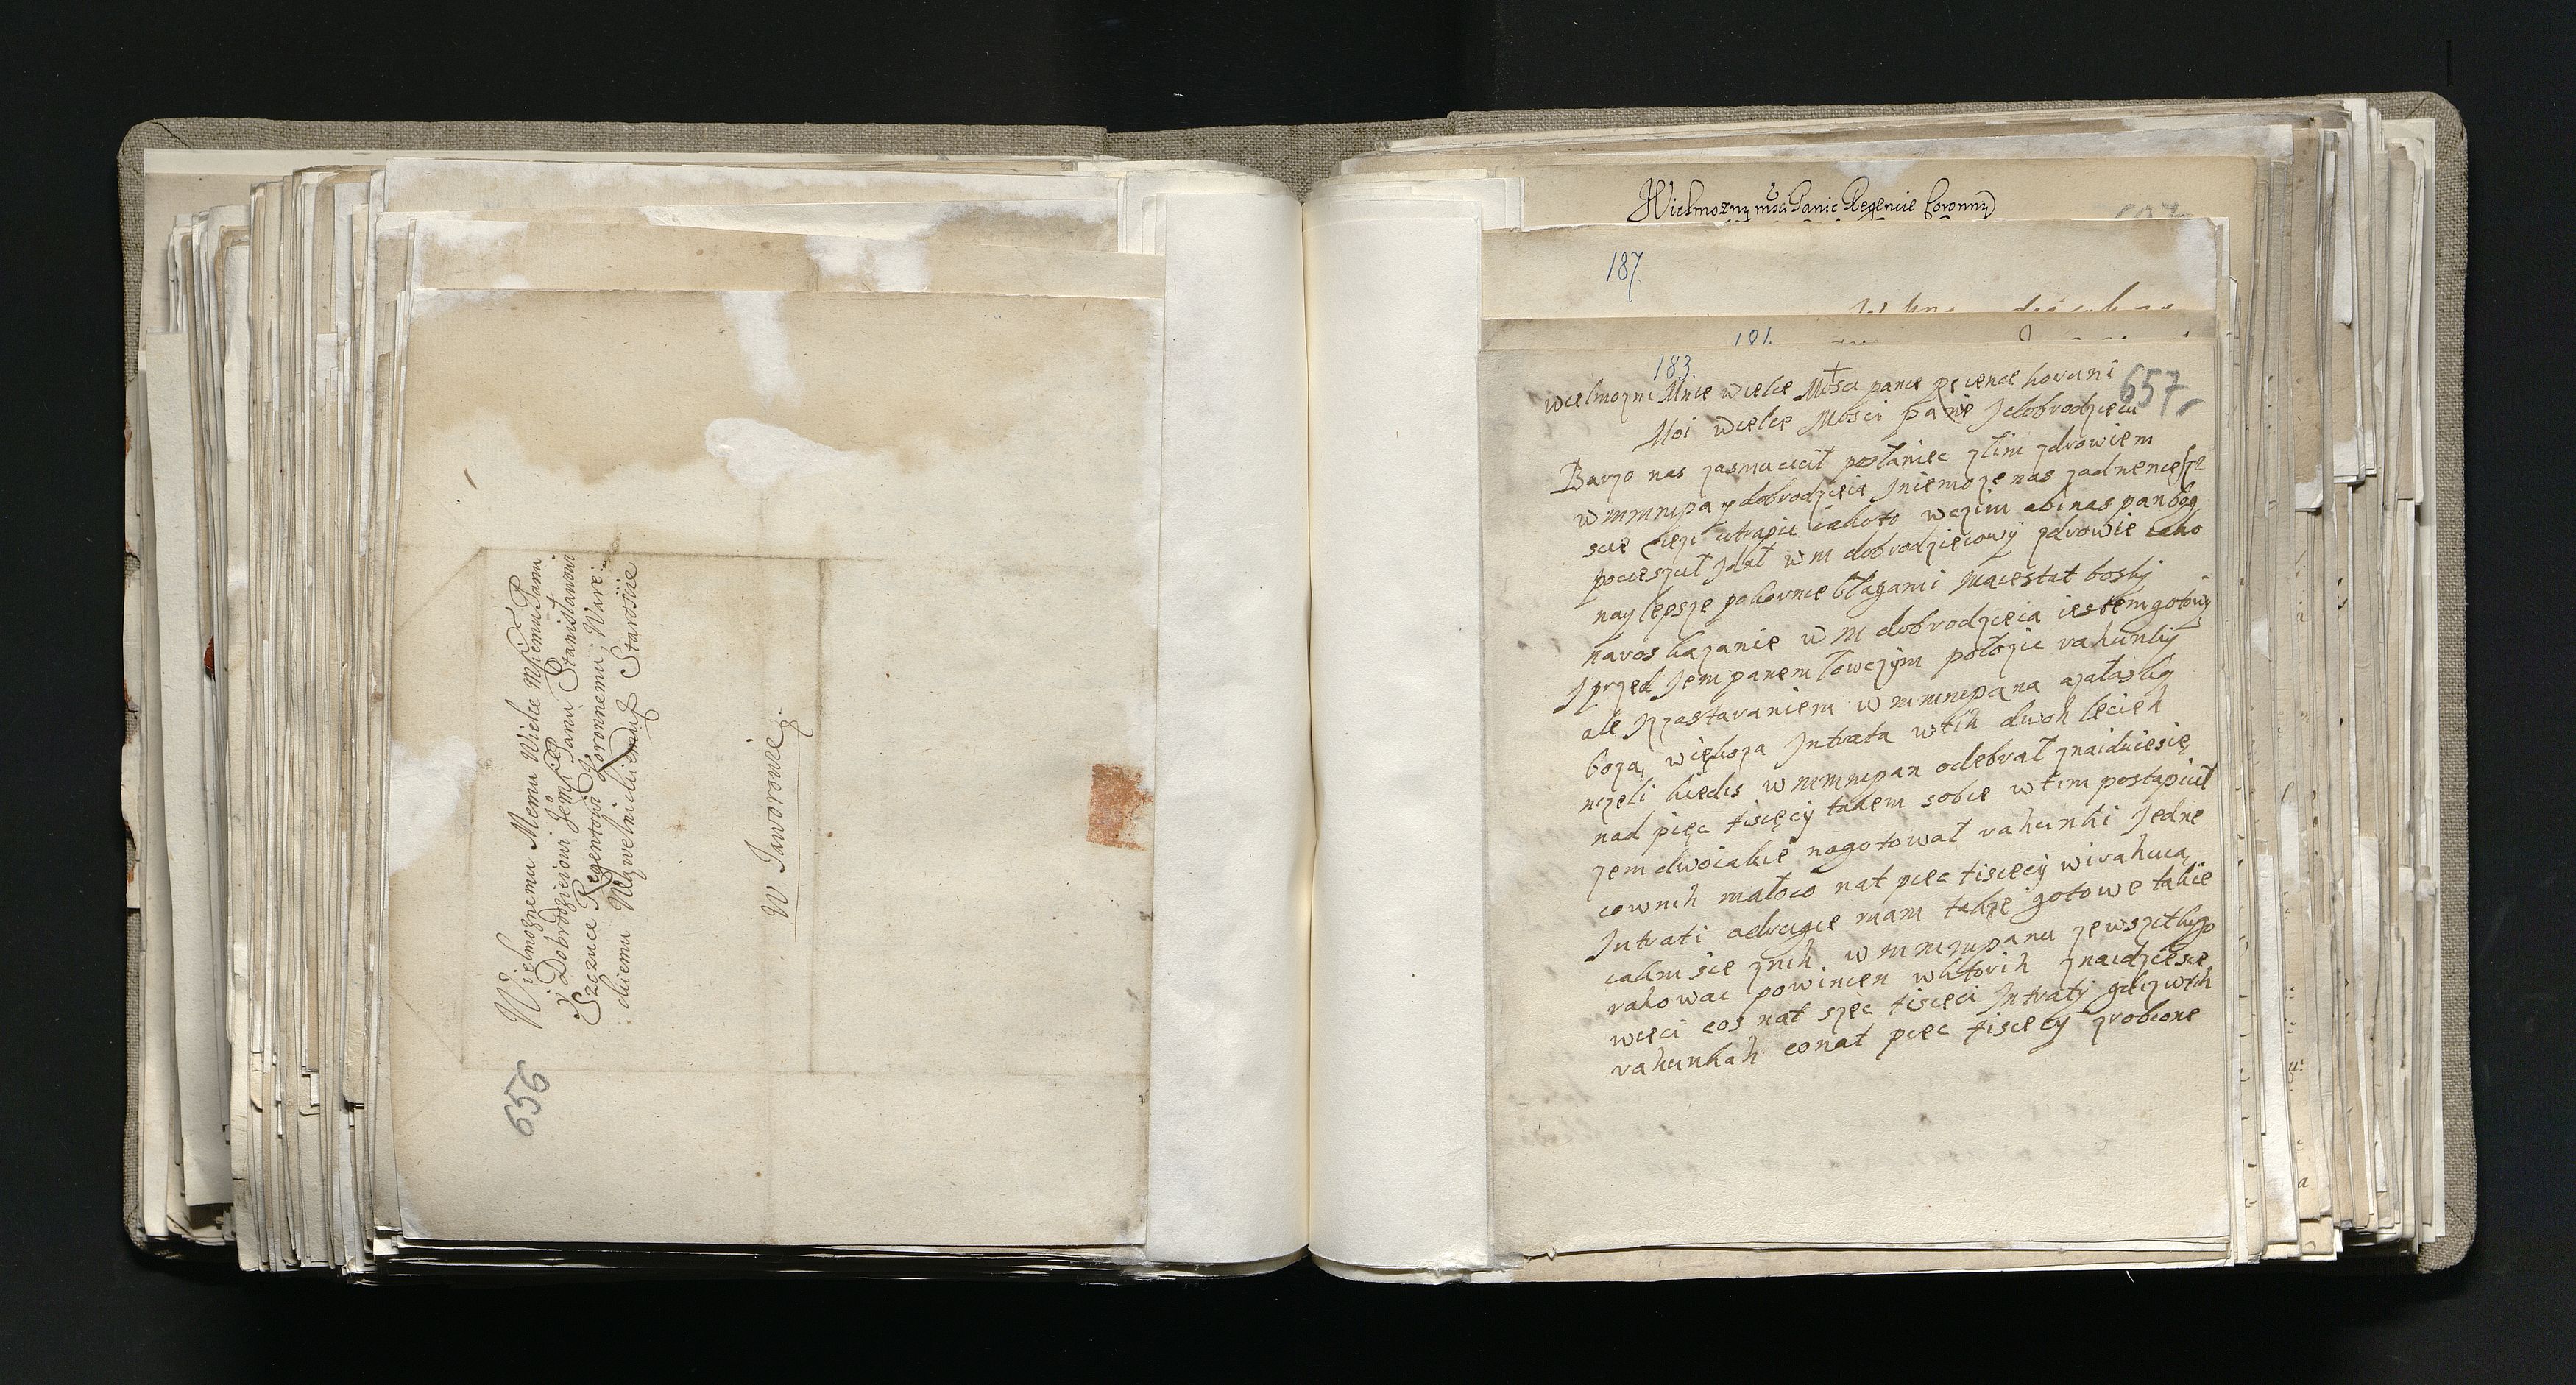 656
Wielmoznemu Memu Wielce Mśćiemu Panu
y Dobrodzieiowi Jem̃ Panu Stanisławowi
Szczuce Regentowi Koronnemu, Ware:
ckiemu Wąwelnickiemu Staroscie
W Jaworowie
Wielmozny mosci Panie Regencie Coronny
187.
181.
183.
657
wielmozni Mnie wielce Mosci panie regencie koruni
Moi wielce Mosci panie J dobrodzieiu
Barzo nas zasmuciił posłaniec zlim zdrowiem
w mmmpa y dobrodzieia J niemoze nas zadne niesze
scie ciezi utrapic iakoto wczim abi nas pan bog
pocieszył J dał w m dobrodzieiowy zdrowie iako
naylepsze pakornie błagami maiestat boski
na roskazanie w m dobrodzieia iestem gotowy
J przed Jem panem łowczÿm położic rahunky
ale J zastavaniem w mmmpana azałasky
boza, większa Intrata wtih dwoh lecieh
nizeli kiedis w mmmpan odebrał znaiduie się
nad pięc tisięcy takem sobie wtim postąpiił
zem dwoiakie nagotował rahunki Jedne
cownih małoco nat piec tisięcy wirahuią
Intrati adrugie mam takze gotowe takie
iakim sie znih w mmmpanu zewszitkigo
rahowac powinien wktorih znaidzie sie
wieci cos nat szęc tisięci Intraty gdizwtih
rahunkah conat pięc tisięcy zrobione